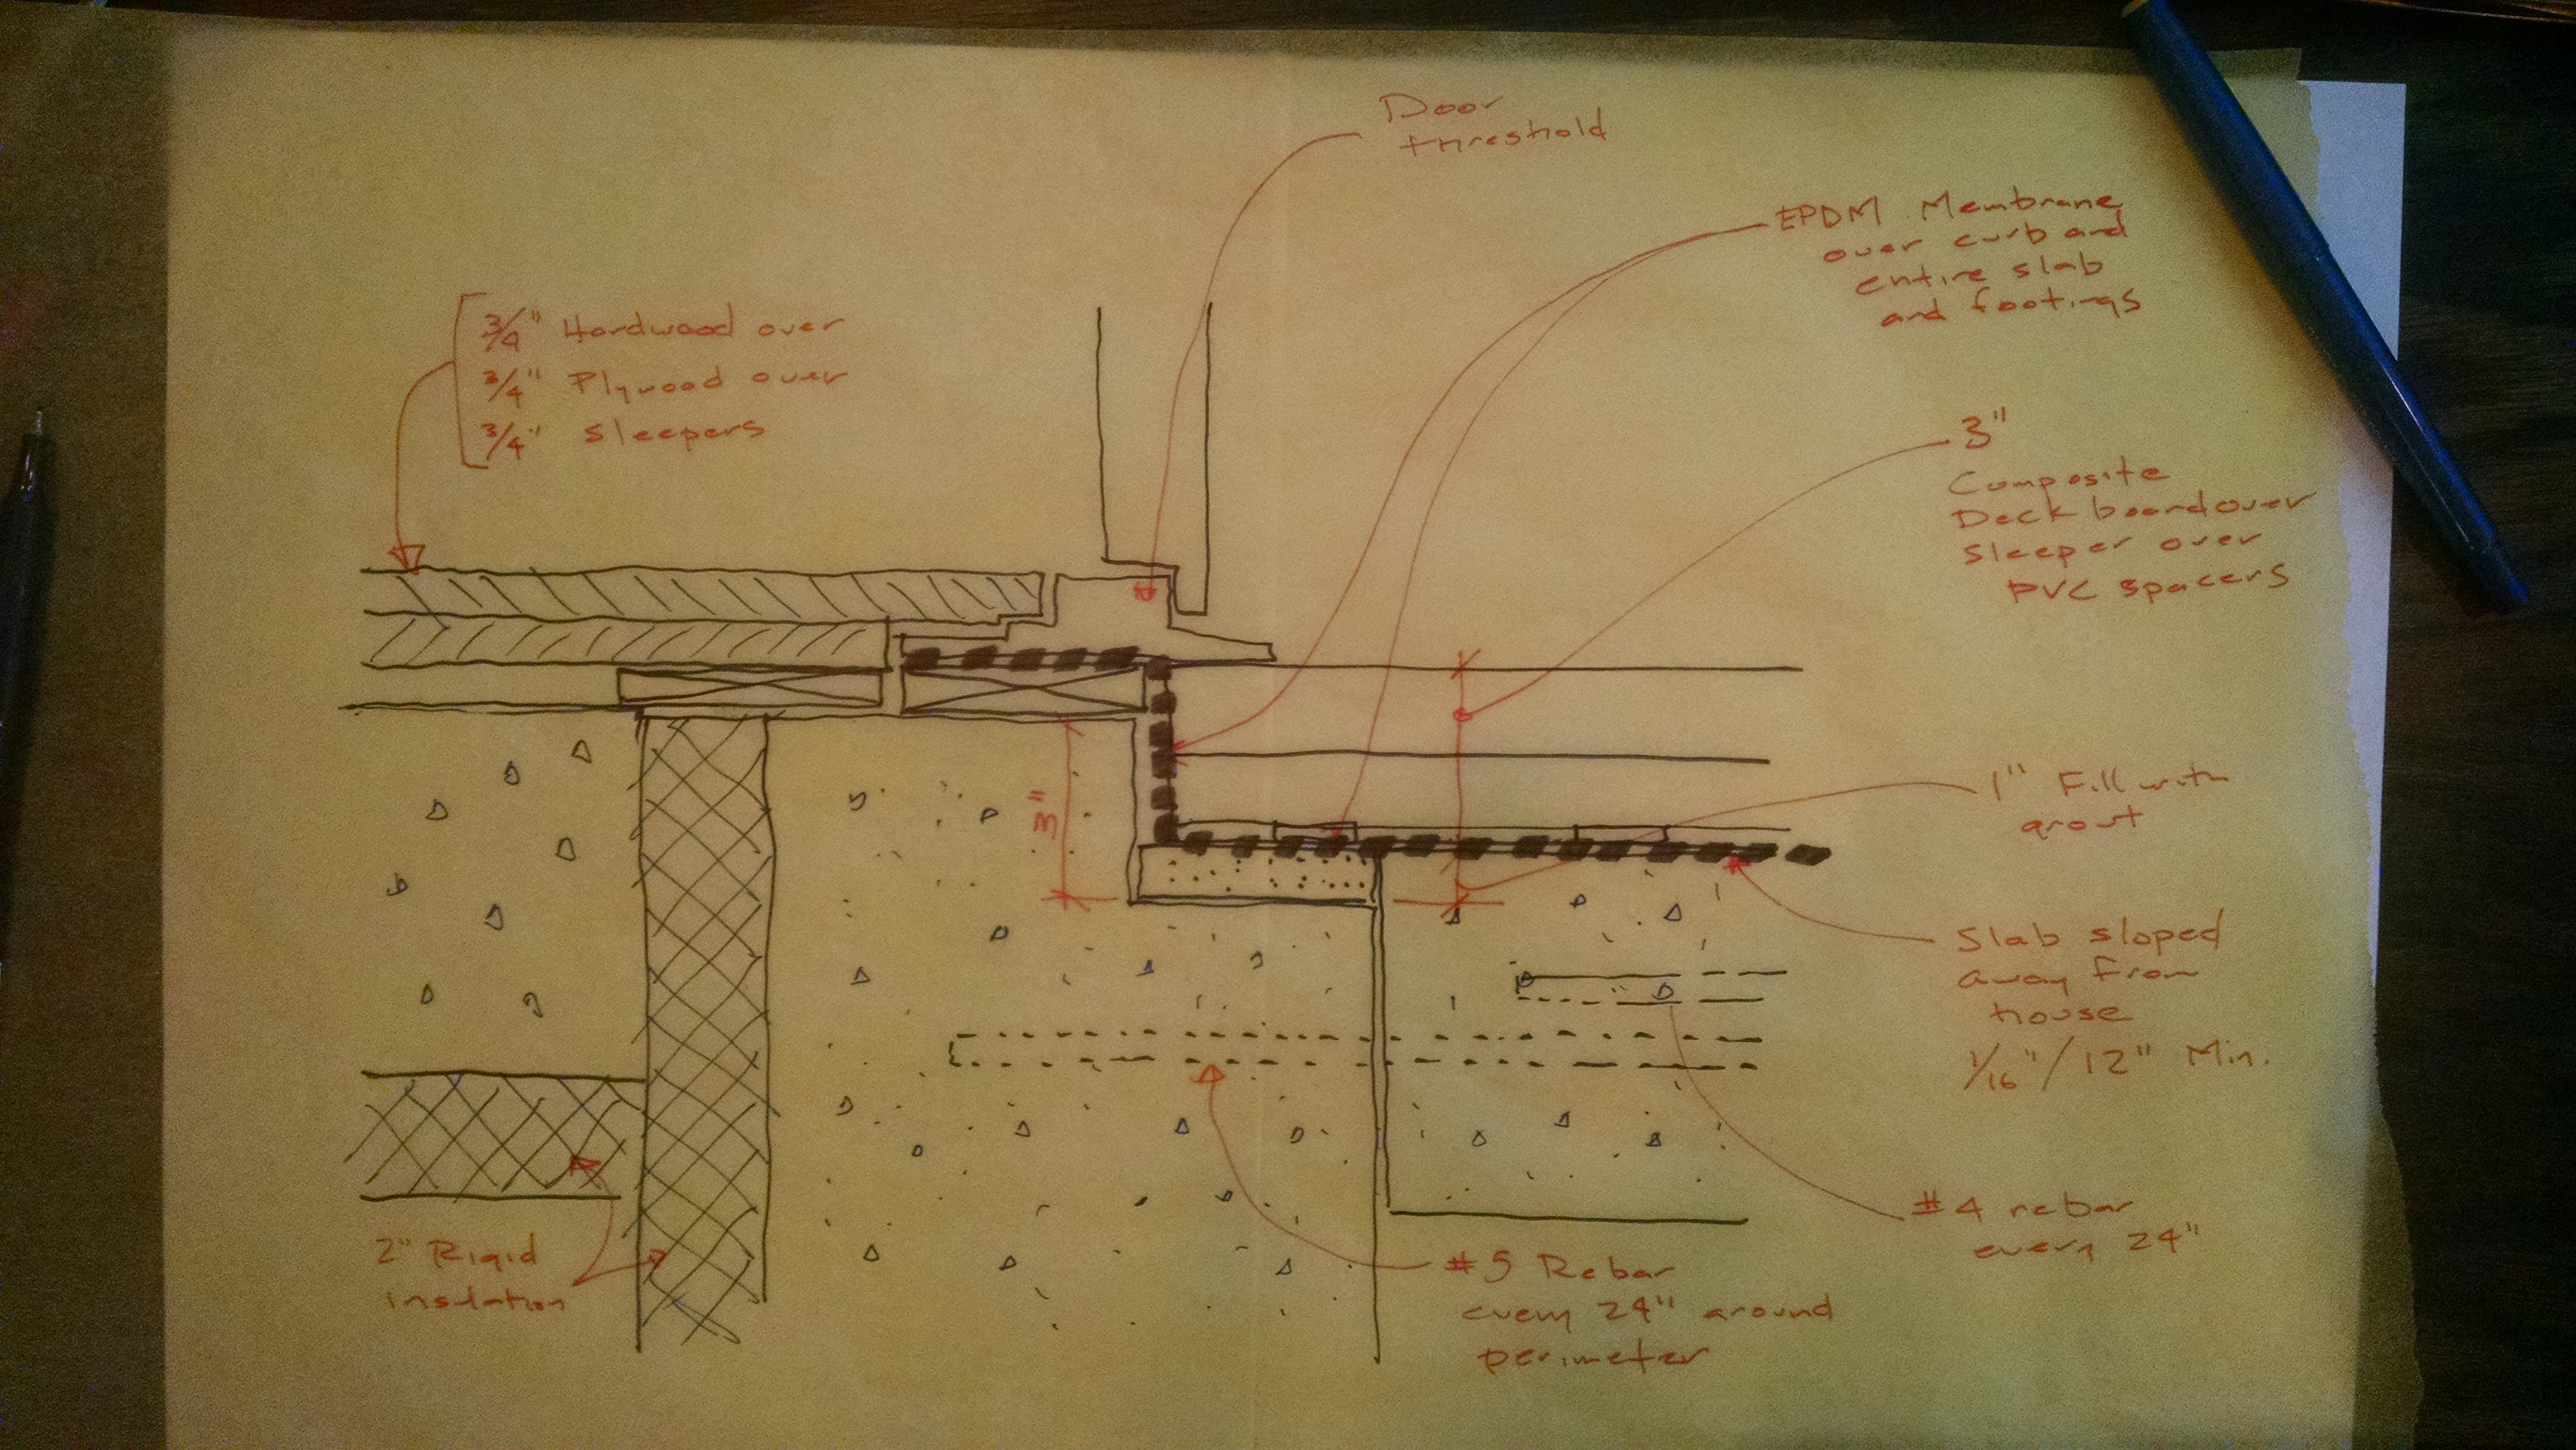 Door
threshold
EPDM Membrane
over curb and
entire slab
and footings
3/4" Hardwood over
3/4" Plywood over
3/4" Sleepers
3"
Composite
Deck board over
Sleeper over
PVC spacers
3"
1" Fill with
grout
Slab sloped
away from
house
1/16"/12" Min.
#4 rebar
every 24"
2" Rigid
insulation
#5 Rebar
every 24" around
perimeter